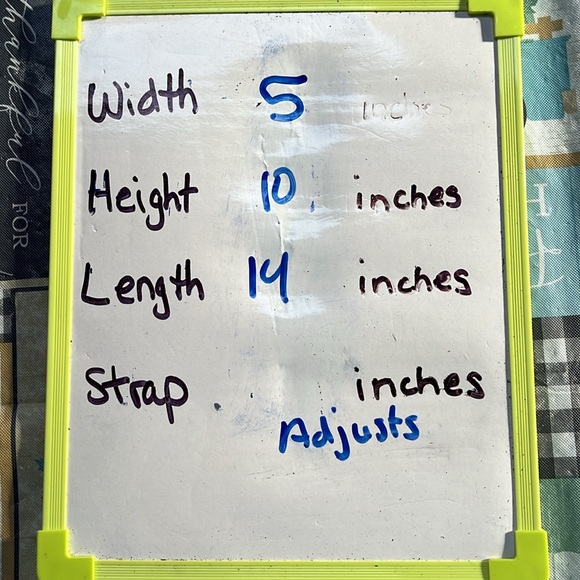 Width 5 inches
Height 10 inches
Length 14 inches
Strap inches
Adjusts
thankful
FOR
H